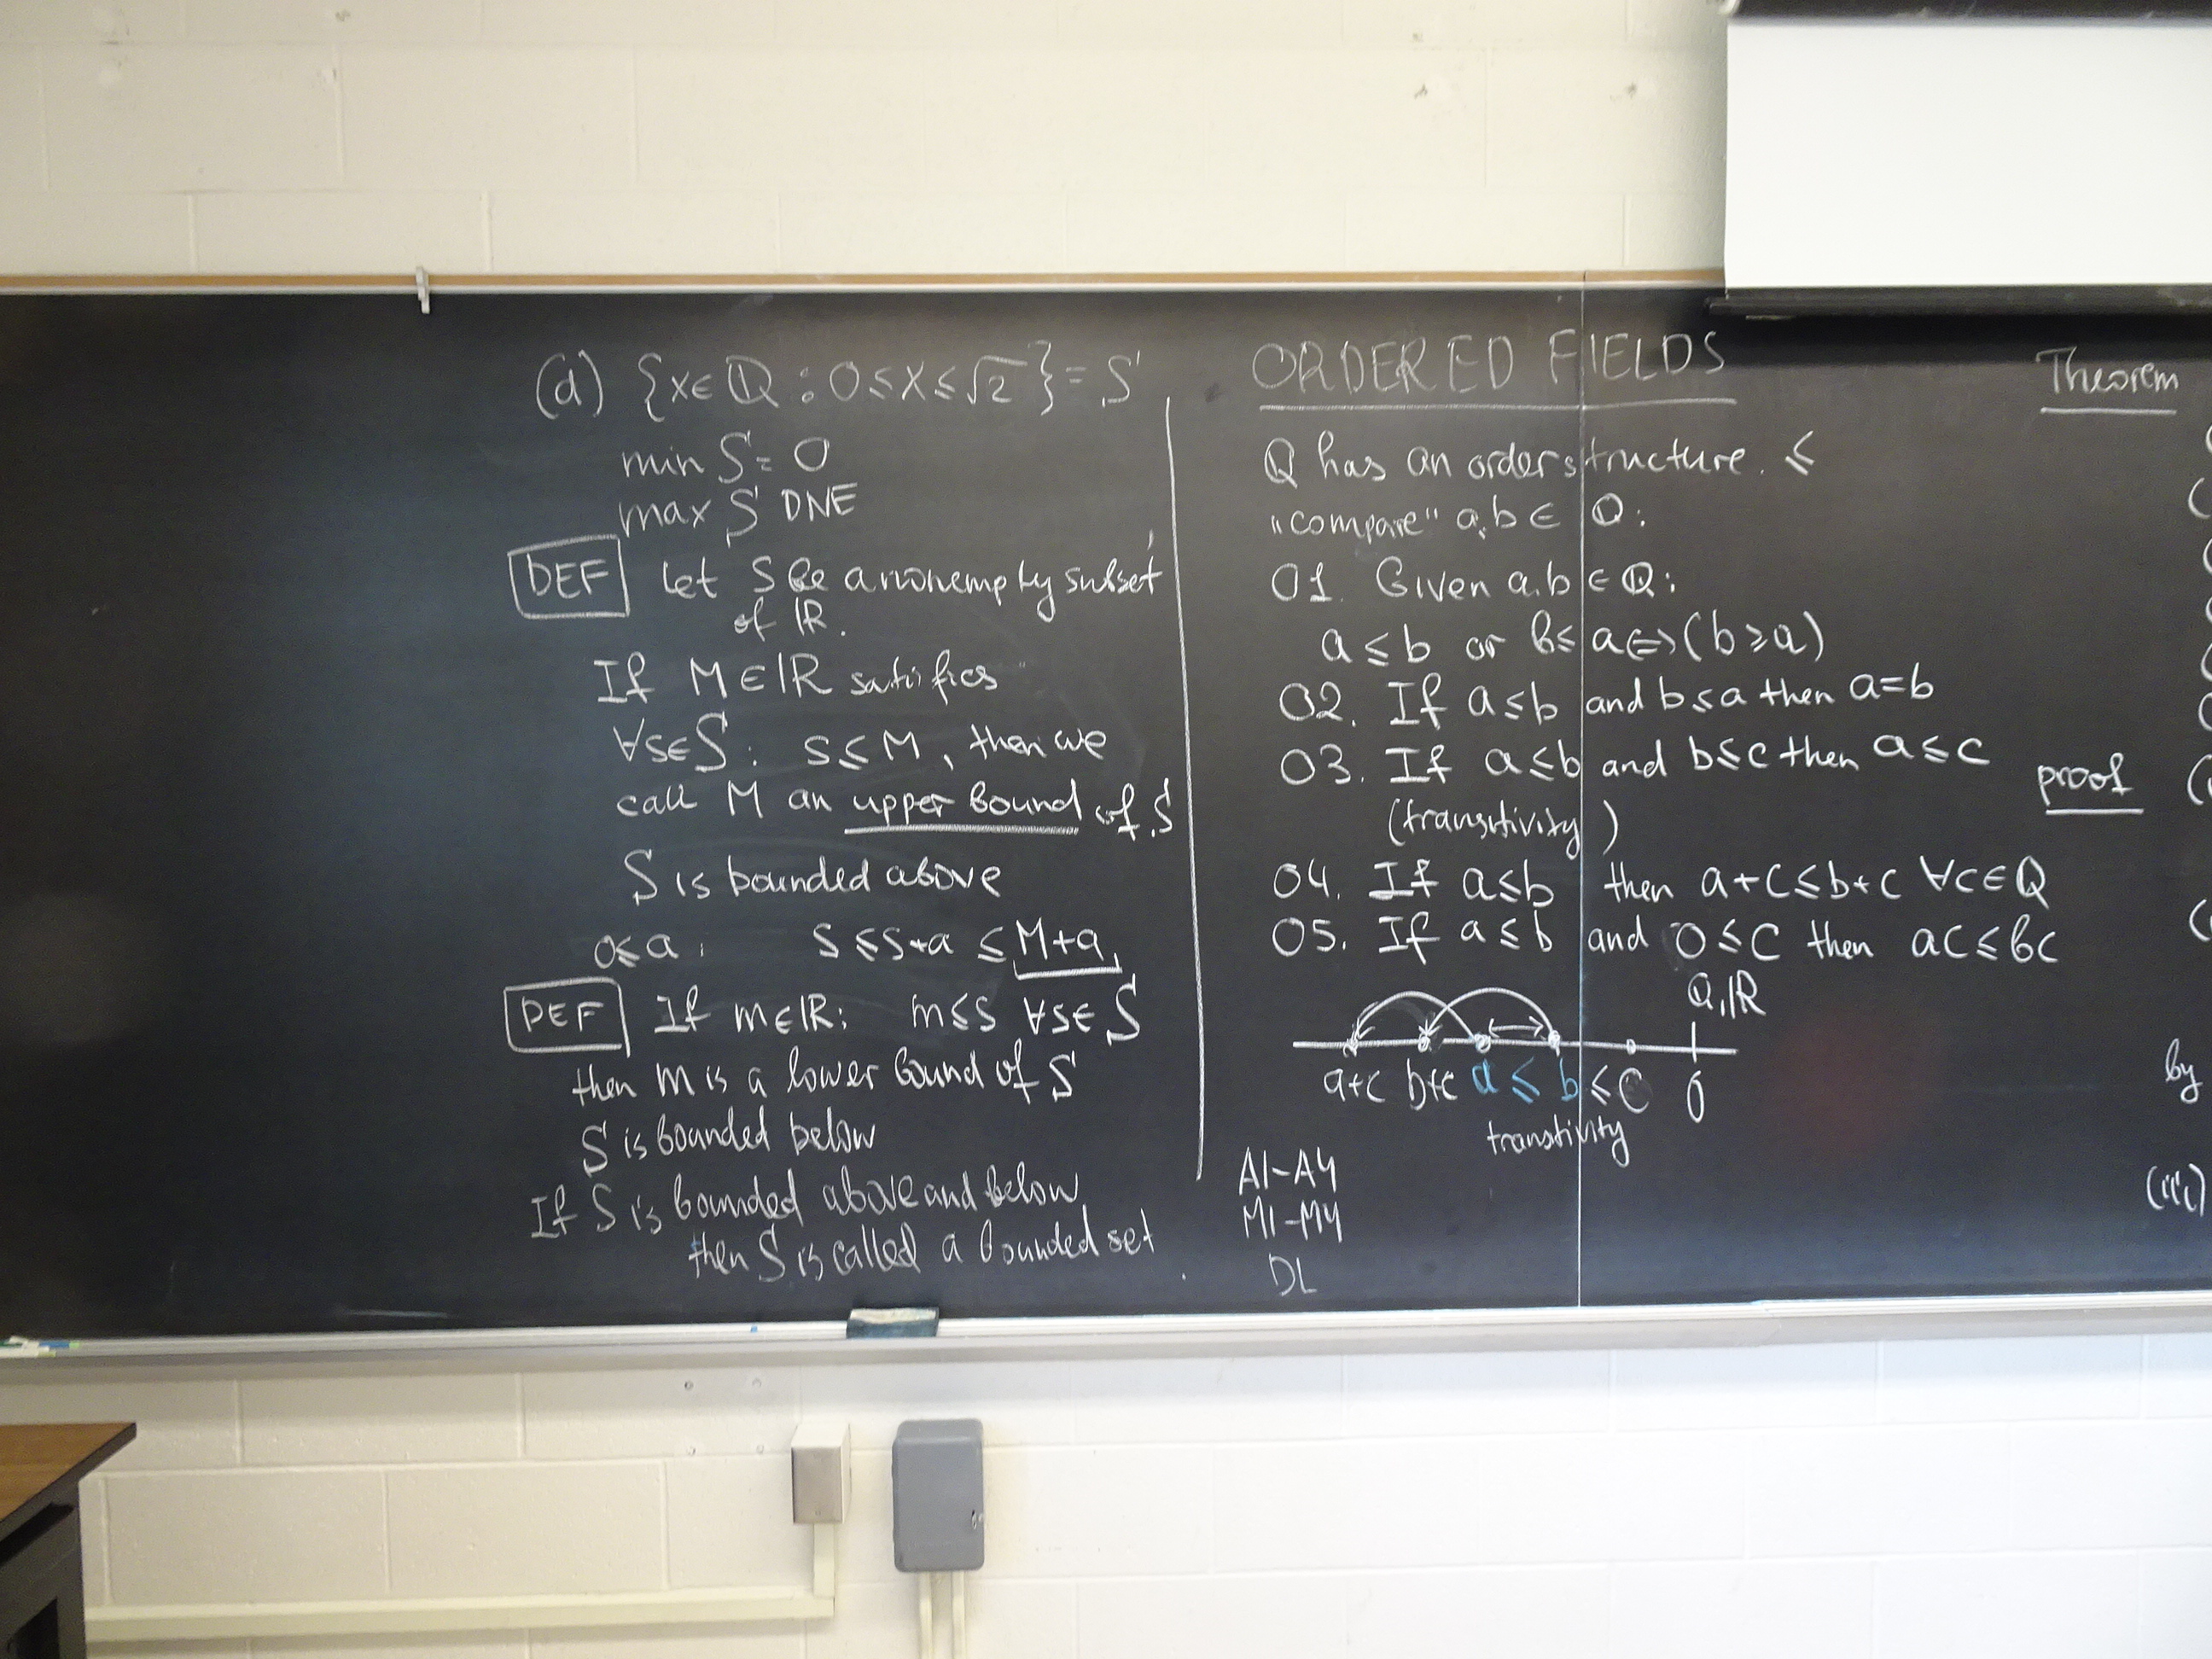 (d) {x∈ℚ : 0≤x≤√2} = S
min S = 0
max S DNE
DEF Let S be a nonempty subset
of ℝ.
If M∈ℝ satisfies
∀s∈S : s≤M, then we
call M an upper bound of S
S is bounded above
0≤a : s≤s+a ≤M+a
DEF If m∈ℝ: m≤s ∀s∈S
then m is a lower bound of S
S is bounded below
If S is bounded above and below
then S is called a bounded set
ORDERED FIELDS
ℚ has an order structure. ≤
"compare" a,b∈ℚ:
O1. Given a,b∈ℚ:
a≤b or b≤a⇔(b≥a)
O2. If a≤b and b≤a then a=b
O3. If a≤b and b≤c then a≤c
(transitivity)
O4. If a≤b then a+c≤b+c ∀c∈ℚ
O5. If a≤b and 0≤c then ac≤bc
ℚ,ℝ
a+c b+c a ≤ b ≤ c 0
transtivity
A1-A4
M1-M4
DL
Theorem
proof
by
(iii)